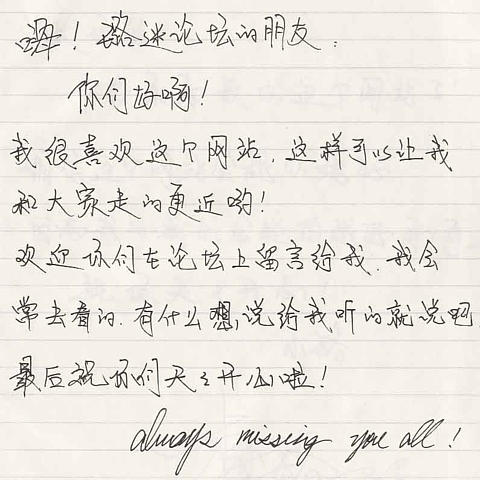 嘿！璐迷论坛的朋友：
你们好啊！
我很喜欢这个网站，这样可以让我
和大家走的更近哟！
欢迎你们在论坛上留言给我，我会
常去看的，有什么想说给我听的就说吧
最后祝你们天天开心啦！
always missing you all！